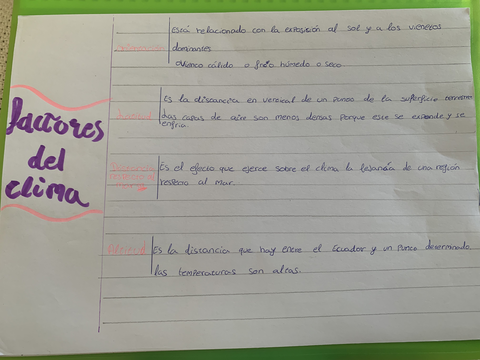 factores
del
clima
Está relacionado con la exposición al sol y a los vientos
dominantes
Viento cálido o frío húmedo o seco
Es la distancia en vertical de un punto de la superficie terrestre
las capas de aire son menos densas porque este se expande y se
enfría
Distancia
respecto al
mar
Es el efecto que ejerce sobre el clima la lejanía de una región
respecto al mar.
Es la distancia que hay entre el Ecuador y un punto determinado
las temperaturas son altas.